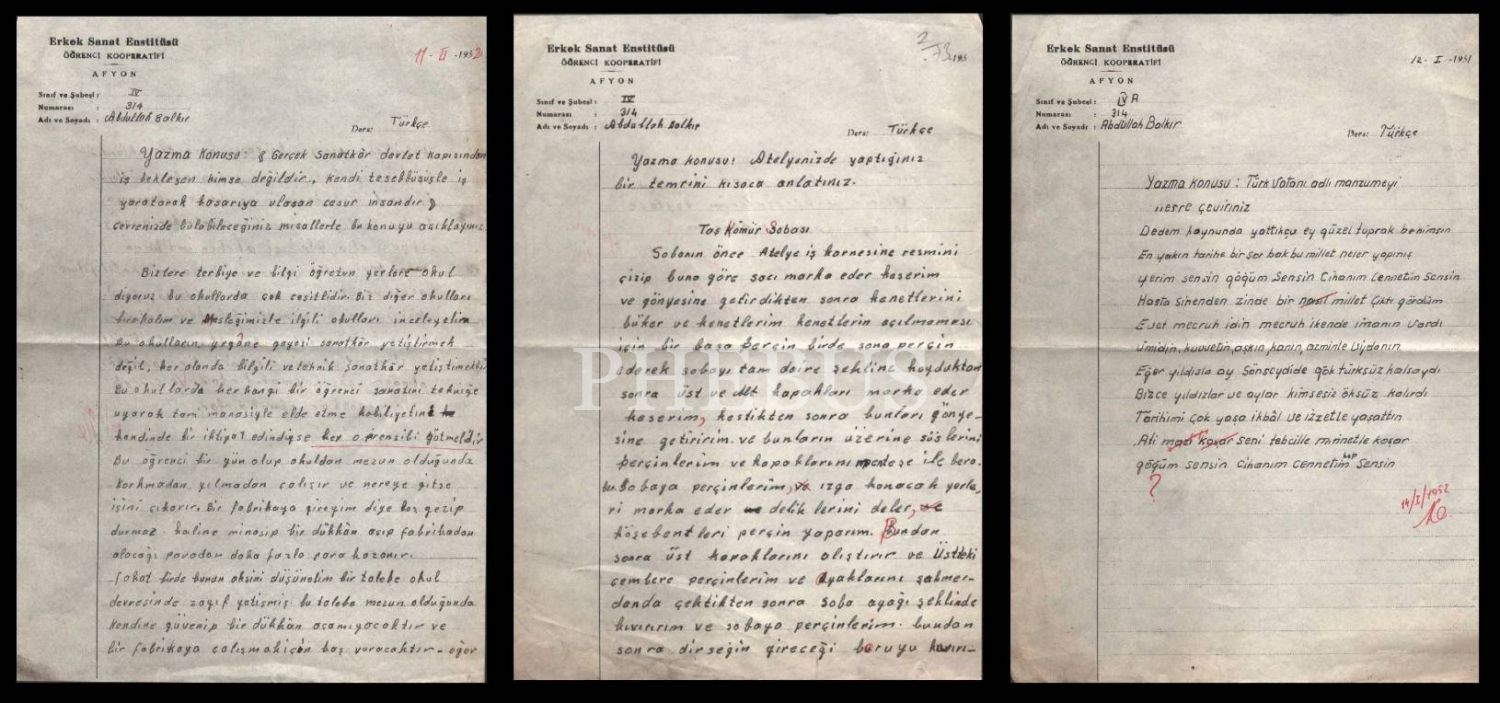 Erkek Sanat Enstitüsü
ÖĞRENCİ KOOPERATİFİ
AFYON
11 - II - 1952
Sınıf ve Şubesi : IV
Numarası : 314
Adı ve Soyadı : Abdullah Balkır
Ders: Türkçe
Yazma Konusu : Gerçek Sanatkâr devlet kapısından
iş bekleyen kimse değildir, kendi teşebbüsüyle iş
yaratarak başarıya ulaşan cesur insandır
çevrenizde bulabileceğiniz misallerle bu konuyu açıklayınız
Bizlere terbiye ve bilgi öğreten yerlere okul
diyoruz bu okullarda çok çeşitlidir. Biz diğer okulları
bırakalım ve Mesleğimizle ilgili okulları inceleyelim
Bu okulların yegâne gayesi sanatkâr yetiştirmek
değil, her alanda bilgili ve teknik sanatkâr yetiştirmektir
Bu okullarda her hangi bir öğrenci sanatını tekniğe
uyarak tam manasiyle elde etme kabiliyetini
kendinde bir iktiyat edindiyse her o prensibi gütmelidir
Bu öğrenci bir gün olup okuldan mezun olduğunda
korkmadan yılmadan çalışır ve nereye gitse
işini çıkarır. Bir fabrikaya gireyim diye boş gezip
durmaz. haline minasip bir dükkân açıp fabrikadan
alacağı paradan daha fazla para kazanır.
fakat birde bunun aksini düşünelim bir talebe okul
devresinde zayıf yetişmiş bu talebe mezun olduğunda
kendine güvenip bir dükkân açamıyacaktır ve
bir fabrikaya çalışmak için baş vuracaktır - eğer
Erkek Sanat Enstitüsü
ÖĞRENCİ KOOPERATİFİ
AFYON
195
Sınıf ve Şubesi : IV
Numarası : 314
Adı ve Soyadı : Abdullah Balkır
Ders: Türkçe
Yazma konusu : Atelyenizde yaptığınız
bir temrini kısaca anlatınız.
Taş Kömür Sobası
Sobanın önce Atelye iş karnesine resmini
çizip buna göre sacı marka eder keserim
ve gönyesine getirdikten sonra kenetlerini
büker ve kenetlerim kenetlerin açılmaması
için bir başa perçin birde sona perçin
ederek sobayı tam daire şekline koyduktan
sonra üst ve Alt kapakları marka eder
keserim, kestikten sonra bunları gönye-
sine getiririm. ve bunların üzerine süslerini
perçinlerim ve kapaklarını menteşe ile bera-
ber Sobaya perçinlerim, ızga konacak yerle-
ri marka eder delik lerini deler,
köşebentleri perçin yaparım. Bundan
sonra üst kapaklarını alıştırır ve Üstteki
çembere perçinlerim ve Ayaklarını şahmer-
danda çektikten sonra Soba ayağı şeklinde
kıvırırım ve sobaya perçinlerim. bundan
sonra dirseğin gireceği boruyu kıvırı-
Erkek Sanat Enstitüsü
ÖĞRENCİ KOOPERATİFİ
AFYON
12 - I - 1951
Sınıf ve Şubesi : IV A
Numarası : 314
Adı ve Soyadı : Abdullah Balkır
Ders: Türkçe
Yazma konusu : Türk Vatanı adlı manzumeyi
nesre çeviriniz
Dedem koynunda yattıkça ey güzel tuprak benimsin
En yakın tarihe bir sor bak bu millet neler yapmış
yerim sensin göğüm Sensin Cihanım Cennetim Sensin
Hasta Sinenden zinde bir nasıl millet çıktı gördüm
Evet mecruh idin mecruh ikende imanın vardı
ümidin, kuvvetin, aşkın, kanın, azminle Vijdanın
Eğer yıldızla ay Sönseydide gök türksüz kalsaydı
Bizce yıldızlar ve aylar kimsesiz öksüz kalırdı
Tarihimi çok yaşa ikbâl ve izzetle yaşattın
Ati mazi koşar seni tebcille minnetle koşar
göğüm sensin Cihanım cennetim hep Sensin
?
14/I/1952
PHEBUS